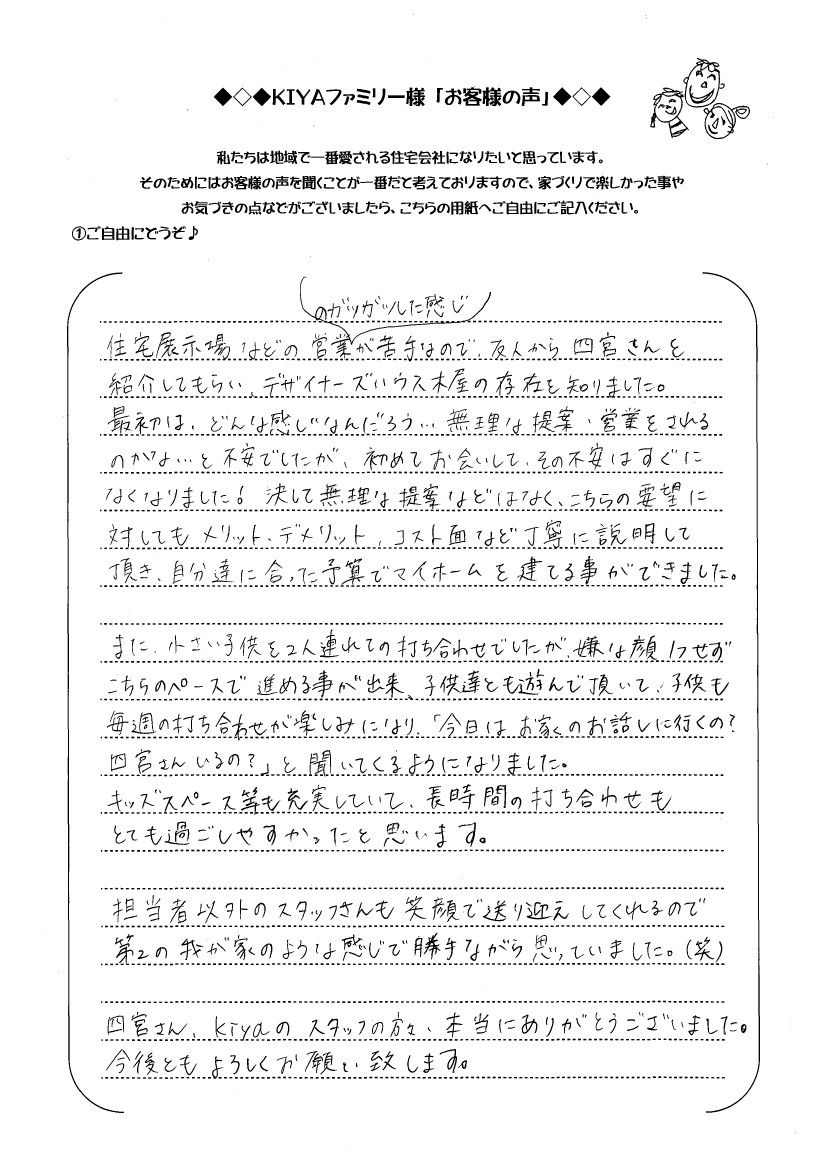 ◆◇◆KIYAファミリー様「お客様の声」◆◇◆
私たちは地域で一番愛される住宅会社になりたいと思っています。
そのためにはお客様の声を聞くことが一番だと考えておりますので、家づくりで楽しかった事や
お気づきの点などがございましたら、こちらの用紙へご自由にご記入ください。
①ご自由にどうぞ♪
のガツガツした感じ
住宅展示場などの営業が苦手なので、友人から四宮さんを
紹介してもらい、デザイナーズハウス木屋の存在を知りました。
最初は、どんな感じなんだろう…無理な提案・営業をされる
のかな…と不安でしたが、初めてお会いして、その不安はすぐに
なくなりました! 決して無理な提案などはなく、こちらの要望に
対してもメリット、デメリット、コスト面など丁寧に説明して
頂き、自分達に合った予算でマイホームを建てる事ができました。
また、小さい子供を2人連れての打ち合わせでしたが、嫌な顔1つせず
こちらのペースで進める事が出来、子供達とも遊んで頂いて、子供も
毎週の打ち合わせが楽しみになり、「今日はお家のお話しに行くの?
四宮さんいるの?」と聞いてくるようになりました。
キッズスペース等も充実していて、長時間の打ち合わせも
とても過ごしやすかったと思います。
担当者以外のスタッフさんも笑顔で送り迎えしてくれるので
第2の我が家のような感じで勝手ながら思っていました。(笑)
四宮さん、kiyaのスタッフの方々、本当にありがとうございました。
今後ともよろしくお願い致します。